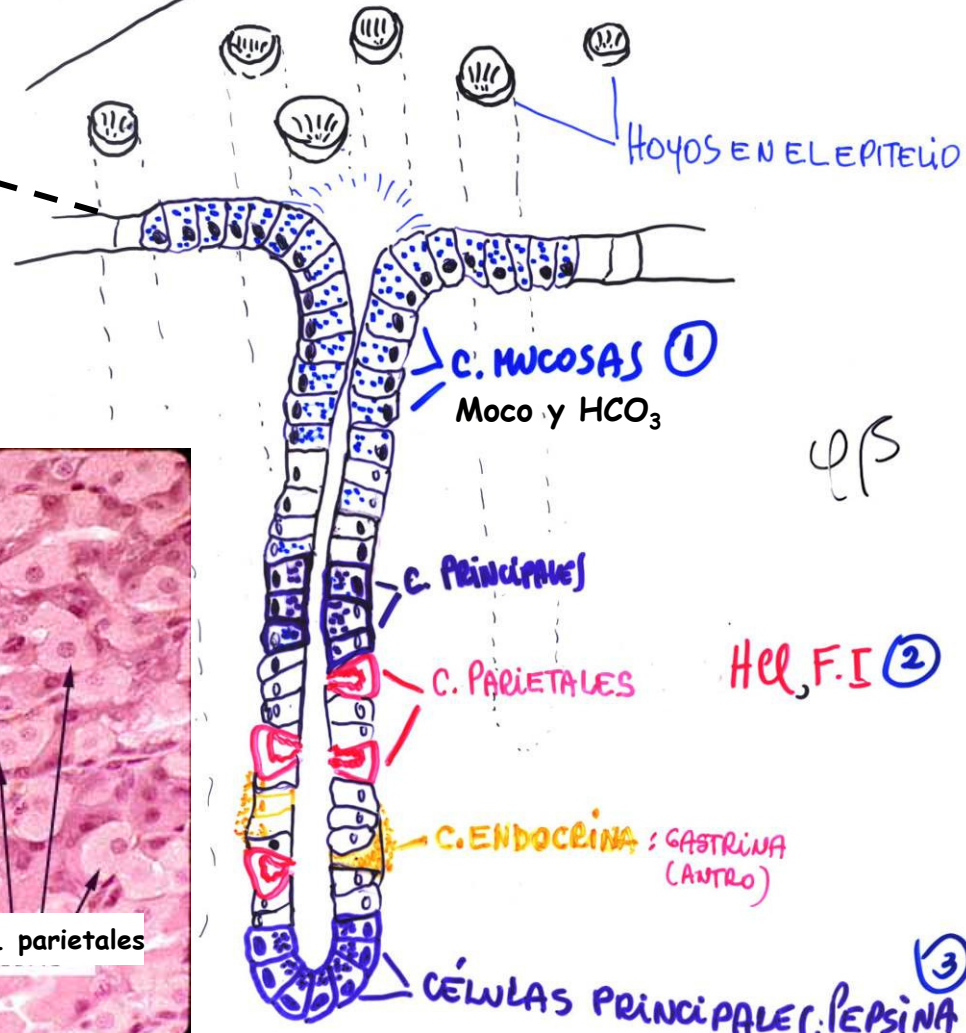 HOYOS EN EL EPITELIO
C. MUCOSAS ①
Moco y HCO₃
C. PRINCIPALES
C. PARIETALES
HCl, F.I ②
C. ENDOCRINA : GASTRINA
(ANTRO)
parietales
③
CÉLULAS PRINCIPALES: PEPSINA